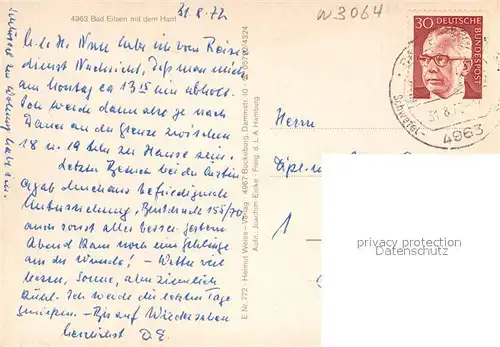 4963 Bad Eilsen mit dem Harrl
31.8.72
W 3064
30 DEUTSCHE BUNDESPOST
31.8.7
Schwefel-
4963
M.l.H. Nun habe im von Reise
dienst Nachricht, daß man mich
am Montag ca 13 15 hier abholt.
Ich werde dann also je nach
Dauer an der Grenze zwischen
18 u 19 Uhr zu Hause sein.
Letzter Besuch bei der Ärztin
ergab durchaus befriedigende
Untersuchung, Blutdruck 155/70
auch sonst alles besser. gestern
Abend kam noch ein
aus der Wunde! – Wetter viel
besser, Sonne, aber ziemlich
kühl. Ich werde die letzten Tage
genießen. – Bis auf Wiedersehen
herzlichst D.E.
Schlüssel zur Wohnung habe ich.
E Nr. 772 - Helmut Weiss - Verlag 4967 Bückeburg, Dammstr. 10 - ☎ 05722/4324
Aufn.: Joachim Eicke - Freig. d. L.A. Hamburg
Herrn
Dipl.-
1
privacy protection
Datenschutz